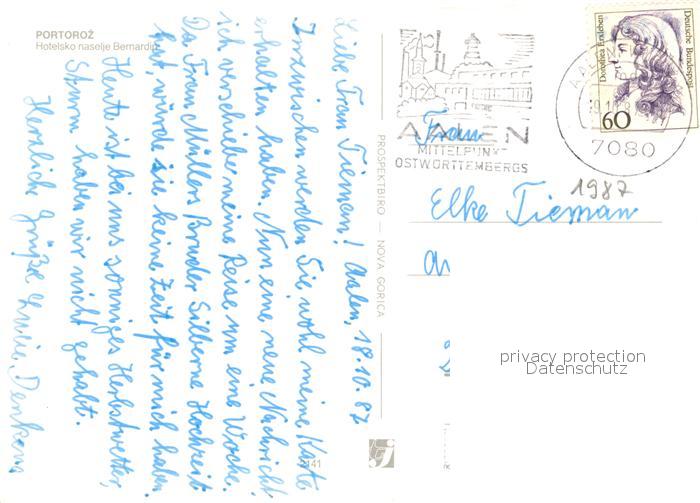 PORTOROŽ
Hotelsko naselje Bernardin
Liebe Frau Tieman! Aalen, 18.10.87
Inzwischen werden Sie wohl meine Karte
erhalten haben. Nun eine neue Nachricht,
ich verschiebe meine Reise um eine Woche.
Da Frau Müllers Bruder Silberne Hochzeit
hat, würde sie keine Zeit für mich haben.
Heute ist bei uns sonniges Herbstwetter,
Sturm haben wir nicht gehabt.
Herzliche Grüße
PROSPEKTBIRO — NOVA GORICA
2141
AALEN
MITTELPUNKT
OSTWÜRTTEMBERGS
AALEN
7080
Dorothea Erxleben
Deutsche Bundespost
60
1987
Frau
Elke Tieman
privacy protection
Datenschutz